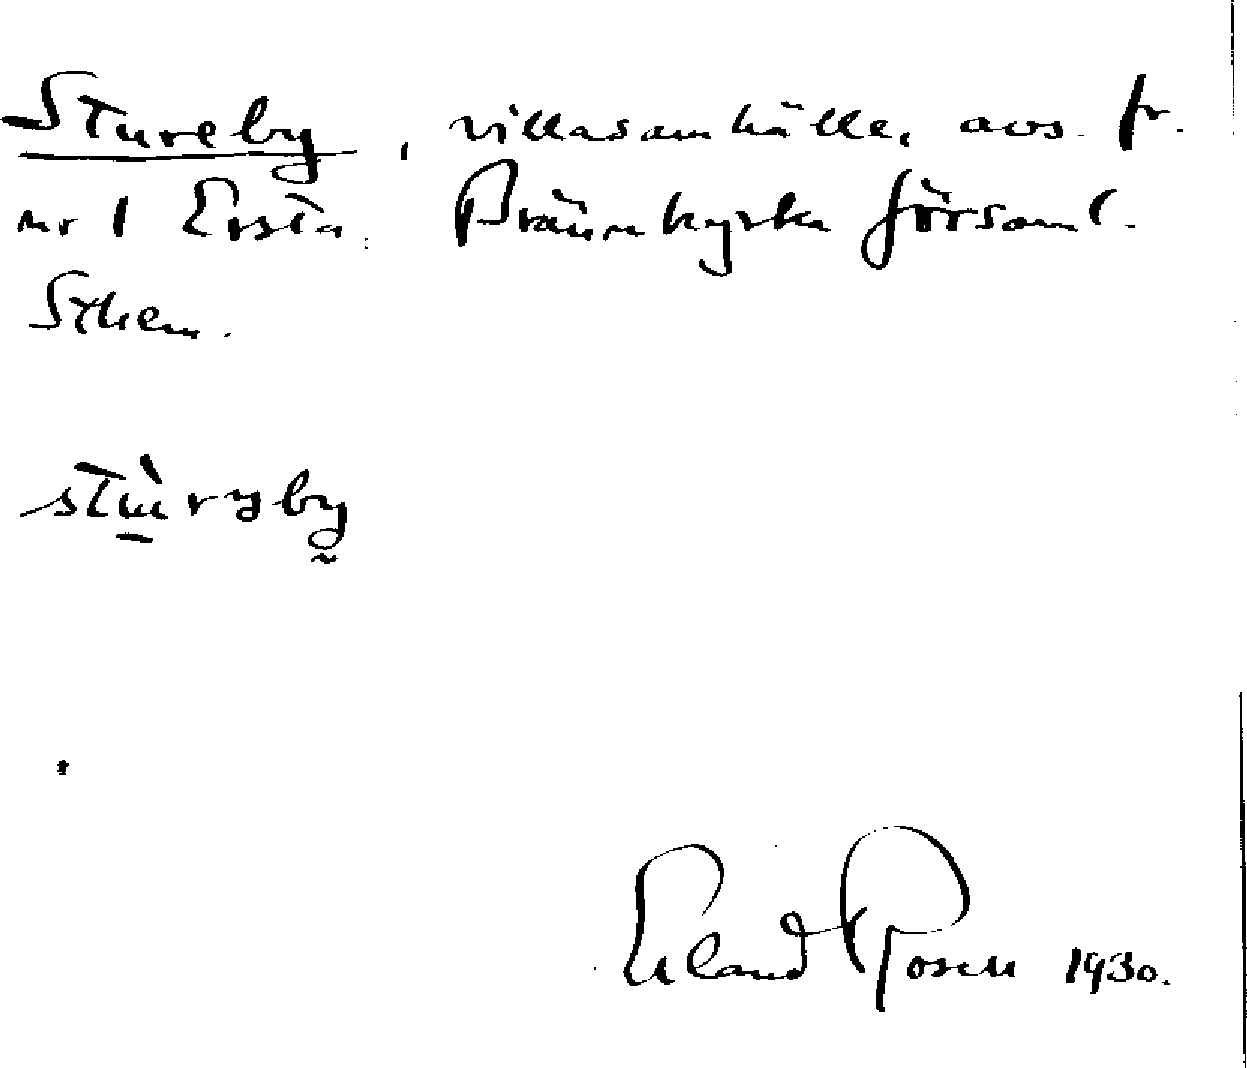 Stureby, villasamhälle, avs. fr.
nr 1 Ersta. Brännkyrka församl.
Sthlm.
Erland Rosell 1930.